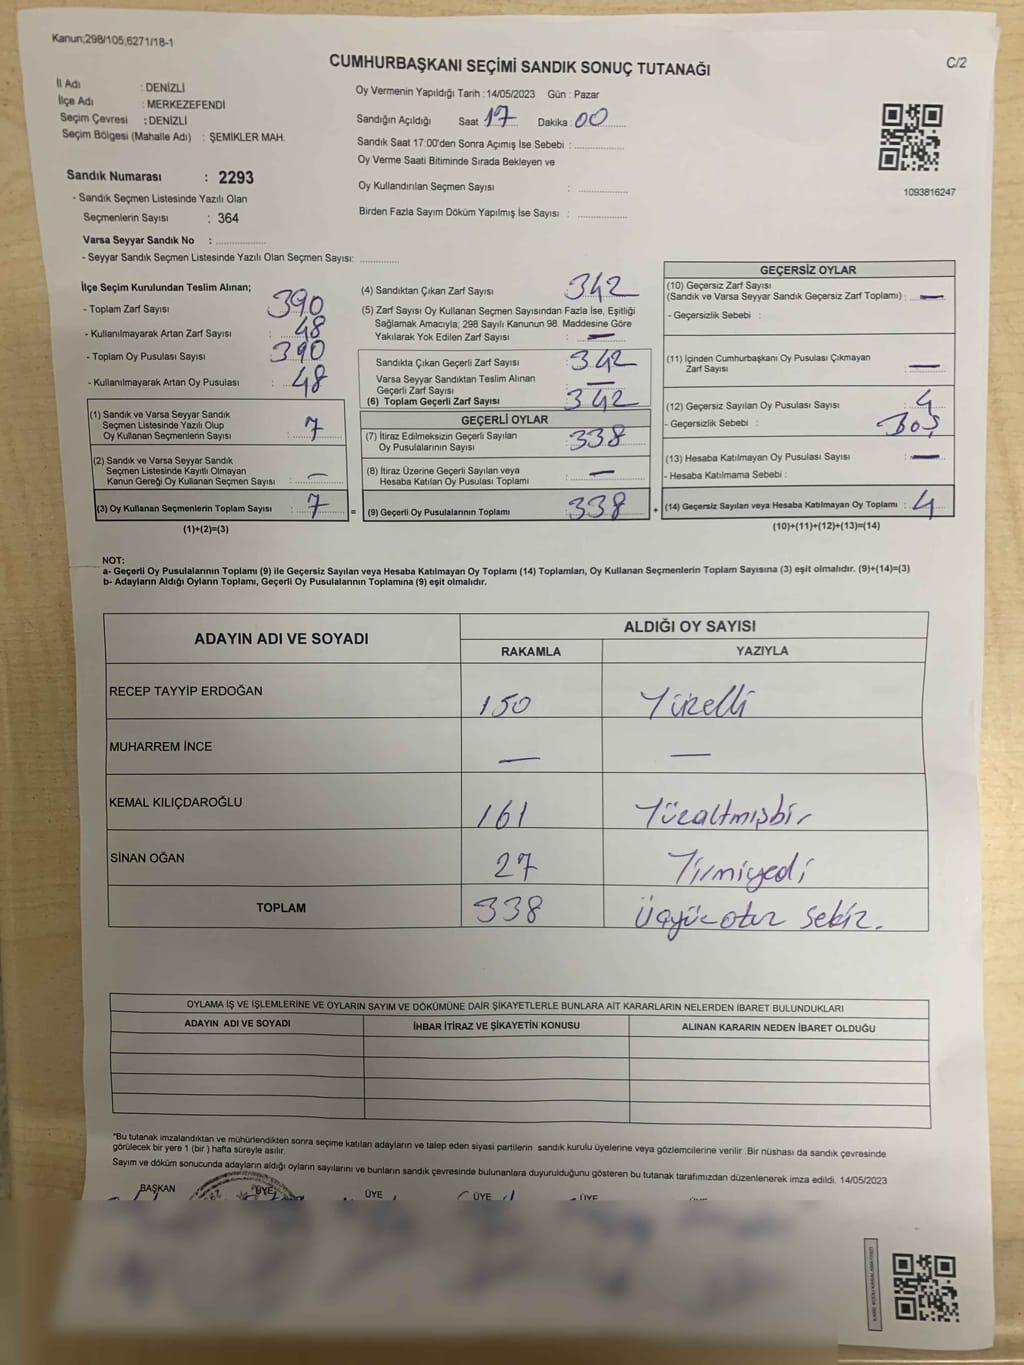 Kanun;298/105;6271/18-1
CUMHURBAŞKANI SEÇİMİ SANDIK SONUÇ TUTANAĞI
C/2
İl Adı : DENİZLİ
İlçe Adı : MERKEZEFENDİ
Seçim Çevresi : DENİZLİ
Seçim Bölgesi (Mahalle Adı) : ŞEMİKLER MAH.
Sandık Numarası : 2293
- Sandık Seçmen Listesinde Yazılı Olan
Seçmenlerin Sayısı : 364
Varsa Seyyar Sandık No :
- Seyyar Sandık Seçmen Listesinde Yazılı Olan Seçmen Sayısı:
Oy Vermenin Yapıldığı Tarih : 14/05/2023 Gün : Pazar
Sandığın Açıldığı Saat 17 Dakika : 00
Sandık Saat 17:00'den Sonra Açımış İse Sebebi :
Oy Verme Saati Bitiminde Sırada Bekleyen ve
Oy Kullandırılan Seçmen Sayısı :
Birden Fazla Sayım Döküm Yapılmış İse Sayısı :
1093816247
İlçe Seçim Kurulundan Teslim Alınan;
- Toplam Zarf Sayısı : 390
- Kullanılmayarak Artan Zarf Sayısı : 48
- Toplam Oy Pusulası Sayısı : 390
- Kullanılmayarak Artan Oy Pusulası : 48
(1) Sandık ve Varsa Seyyar Sandık
Seçmen Listesinde Yazılı Olup
Oy Kullanan Seçmenlerin Sayısı : 7
(2) Sandık ve Varsa Seyyar Sandık
Seçmen Listesinde Kayıtlı Olmayan
Kanun Gereği Oy Kullanan Seçmen Sayısı : —
(3) Oy Kullanan Seçmenlerin Toplam Sayısı : 7
(1)+(2)=(3)
(4) Sandıktan Çıkan Zarf Sayısı : 342
(5) Zarf Sayısı Oy Kullanan Seçmen Sayısından Fazla İse, Eşitliği
Sağlamak Amacıyla; 298 Sayılı Kanunun 98. Maddesine Göre
Yakılarak Yok Edilen Zarf Sayısı : —
Sandıkta Çıkan Geçerli Zarf Sayısı : 342
Varsa Seyyar Sandıktan Teslim Alınan
Geçerli Zarf Sayısı : —
(6) Toplam Geçerli Zarf Sayısı : 342
GEÇERLİ OYLAR
(7) İtiraz Edilmeksizin Geçerli Sayılan
Oy Pusulalarının Sayısı : 338
(8) İtiraz Üzerine Geçerli Sayılan veya
Hesaba Katılan Oy Pusulası Toplamı : —
= (9) Geçerli Oy Pusulalarının Toplamı : 338
GEÇERSİZ OYLAR
(10) Geçersiz Zarf Sayısı
(Sandık ve Varsa Seyyar Sandık Geçersiz Zarf Toplamı) : —
- Geçersizlik Sebebi :
(11) İçinden Cumhurbaşkanı Oy Pusulası Çıkmayan
Zarf Sayısı : —
(12) Geçersiz Sayılan Oy Pusulası Sayısı : 4
- Geçersizlik Sebebi : BOŞ
(13) Hesaba Katılmayan Oy Pusulası Sayısı : —
- Hesaba Katılmama Sebebi :
+ (14) Geçersiz Sayılan veya Hesaba Katılmayan Oy Toplamı : 4
(10)+(11)+(12)+(13)=(14)
NOT:
a- Geçerli Oy Pusulalarının Toplamı (9) ile Geçersiz Sayılan veya Hesaba Katılmayan Oy Toplamı (14) Toplamları, Oy Kullanan Seçmenlerin Toplam Sayısına (3) eşit olmalıdır. (9)+(14)=(3)
b- Adayların Aldığı Oyların Toplamı, Geçerli Oy Pusulalarının Toplamına (9) eşit olmalıdır.
ADAYIN ADI VE SOYADI
ALDIĞI OY SAYISI
RAKAMLA YAZIYLA
RECEP TAYYİP ERDOĞAN 150 Yüzelli
MUHARREM İNCE — —
KEMAL KILIÇDAROĞLU 161 Yüzaltmışbir
SİNAN OĞAN 27 Yirmiyedi
TOPLAM 338 Üçyüz otuz sekiz.
OYLAMA İŞ VE İŞLEMLERİNE VE OYLARIN SAYIM VE DÖKÜMÜNE DAİR ŞİKAYETLERLE BUNLARA AİT KARARLARIN NELERDEN İBARET BULUNDUKLARI
ADAYIN ADI VE SOYADI İHBAR İTİRAZ VE ŞİKAYETİN KONUSU ALINAN KARARIN NEDEN İBARET OLDUĞU
*Bu tutanak imzalandıktan ve mühürlendikten sonra seçime katılan adayların ve talep eden siyasi partilerin sandık kurulu üyelerine veya gözlemcilerine verilir .Bir nüshası da sandık çevresinde
görülecek bir yere 1 (bir ) hafta süreyle asılır.
Sayım ve döküm sonucunda adayların aldığı oyların sayılarını ve bunların sandık çevresinde bulunanlara duyurulduğunu gösteren bu tutanak tarafımızdan düzenlenerek imza edildi. 14/05/2023
BAŞKAN ÜYE ÜYE ÜYE ÜYE